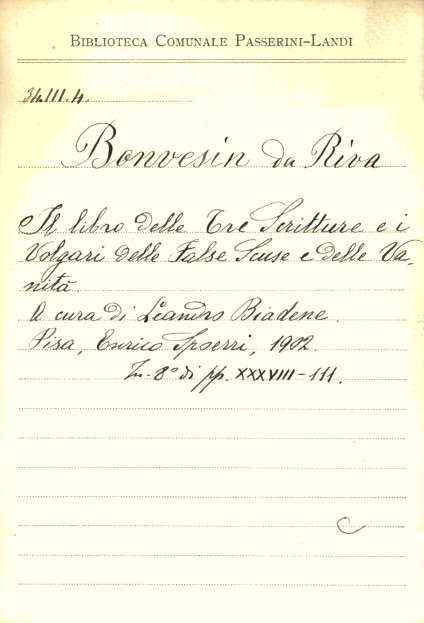 BIBLIOTECA COMUNALE PASSERINI-LANDI
34.III.4.
Bonvesin da Riva
Il libro delle Tre Scritture e i
Volgari delle False Scuse e delle Va-
nità.
A cura di Leandro Biadene.
Pisa, Enrico Spoerri, 1902.
In-8° di pp. XXXVIII-111.
C